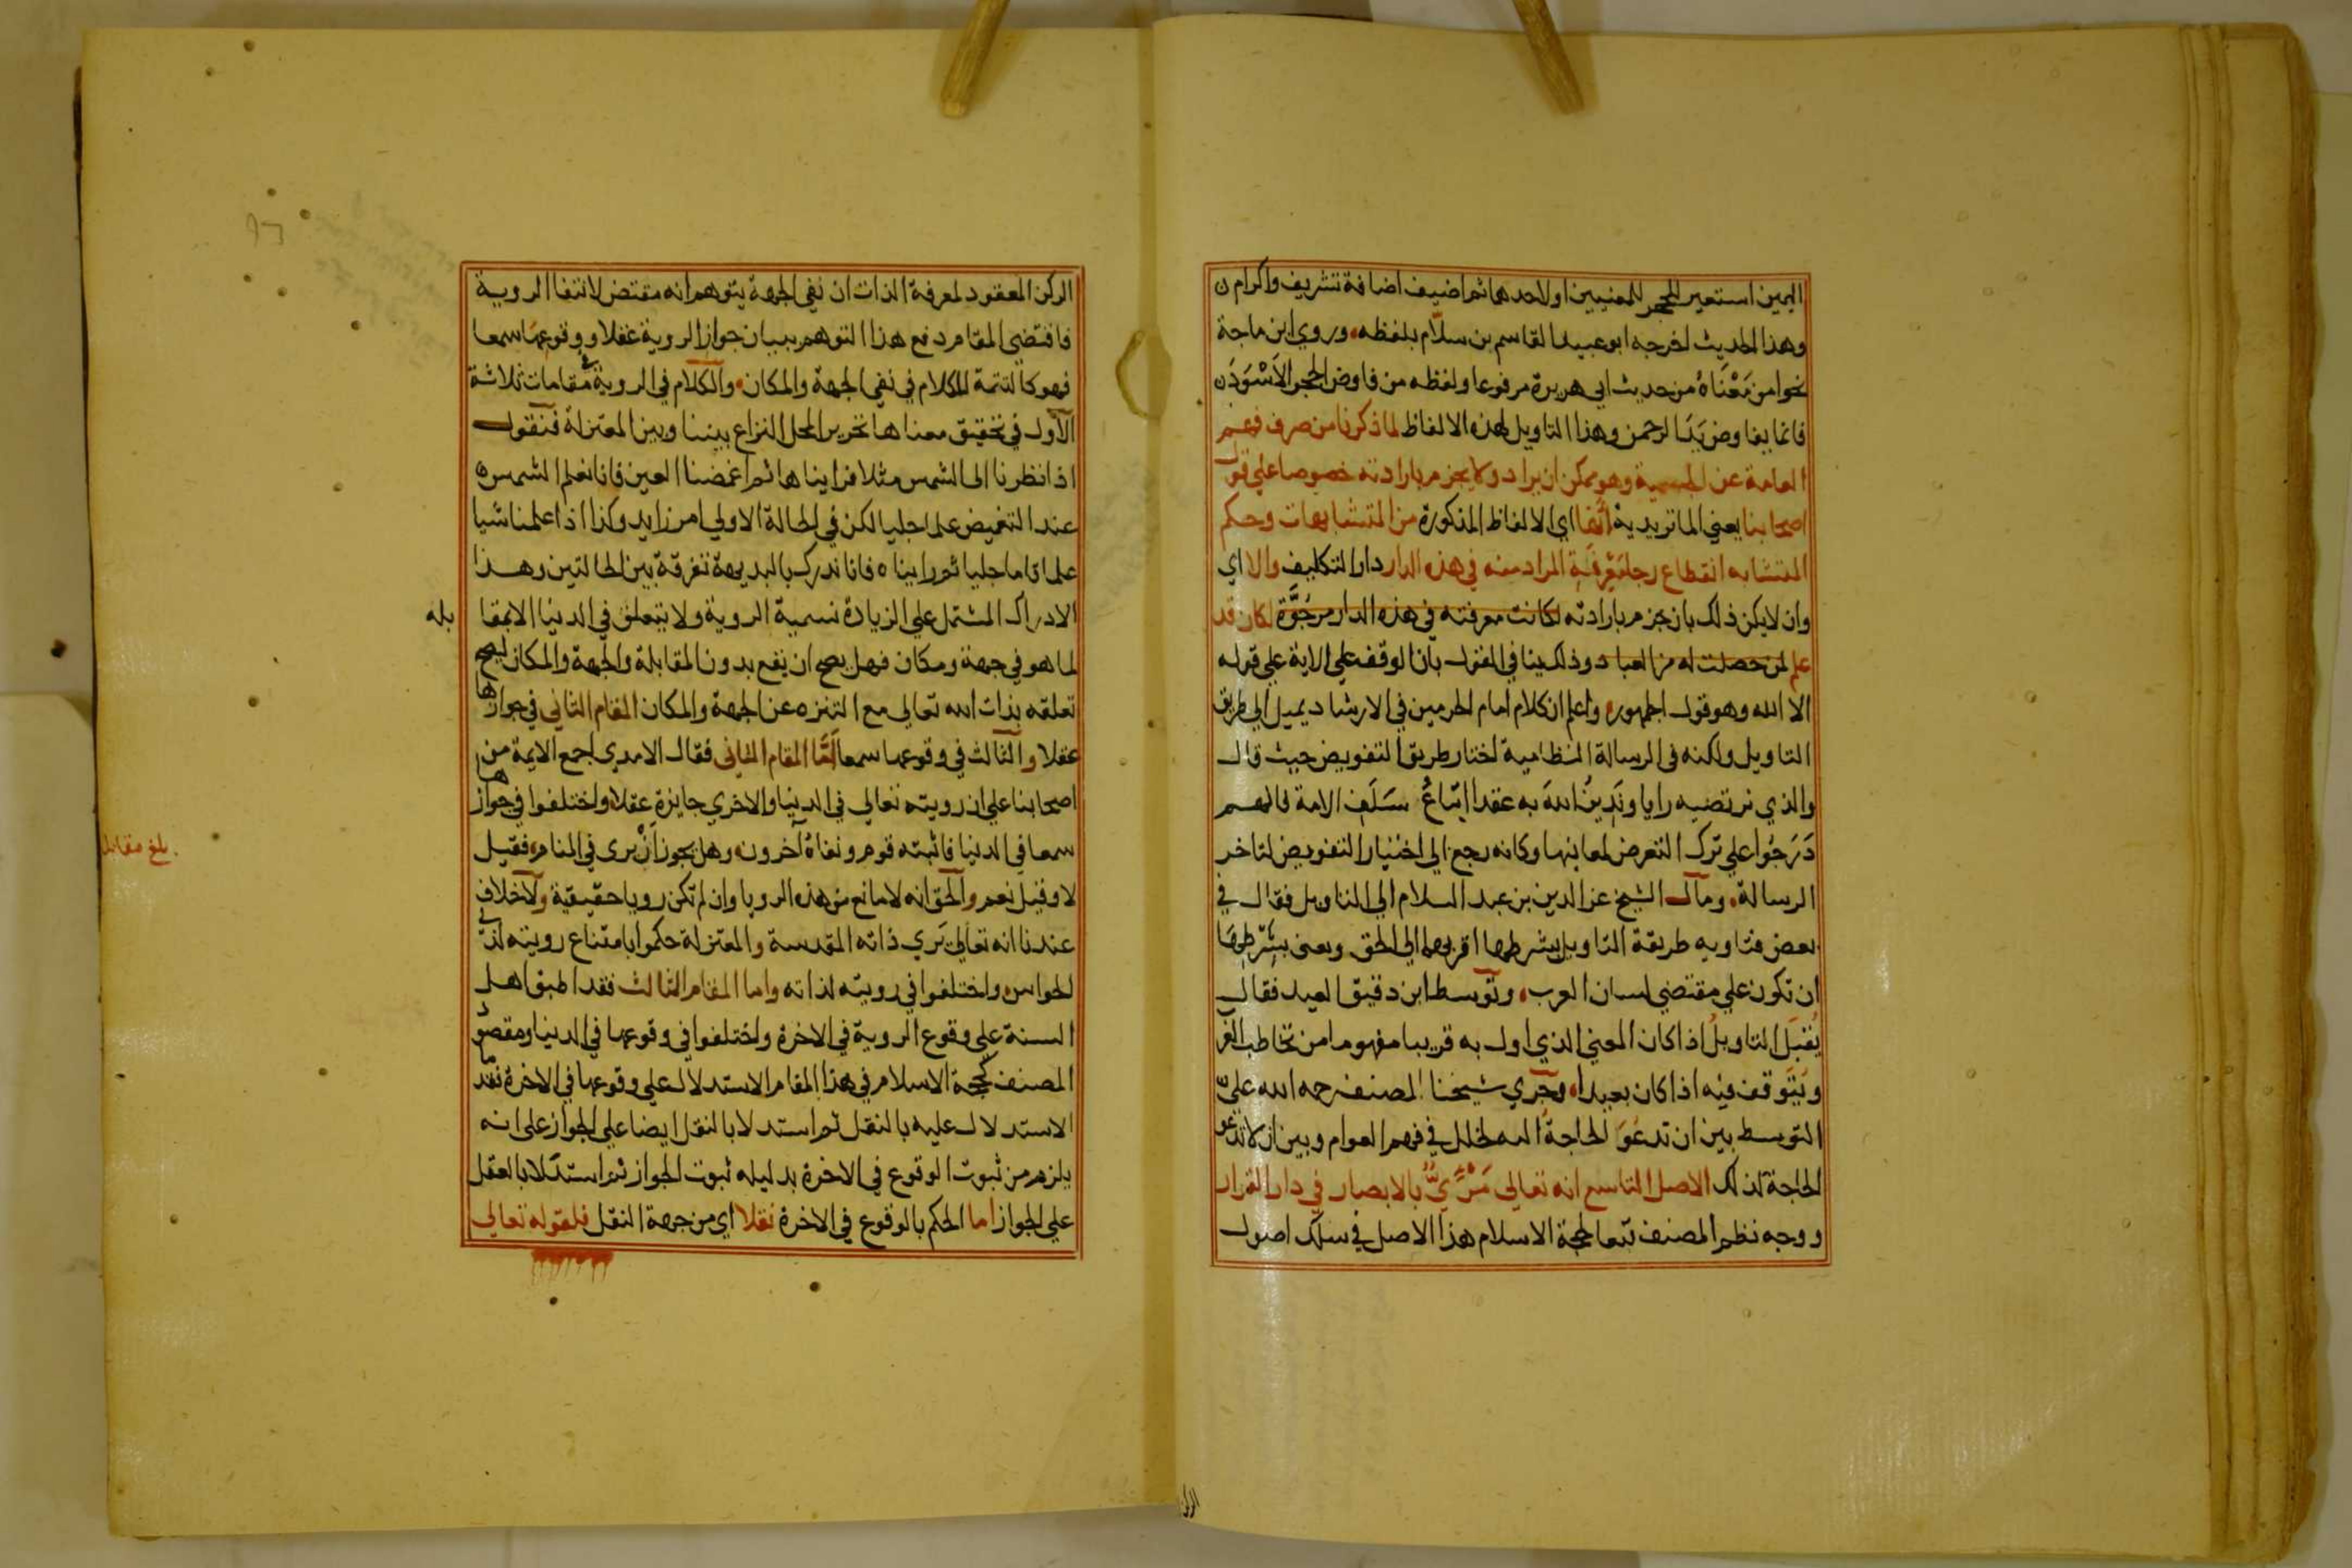 اليمين استعير الحجر للمعنيين او لاحدهما ثم اضيف اضافة تشريف واكرام ن
وهذا الحديث اخرجه ابو عبيد القاسم بن سلّام بلفظه، وروي ابن ماجة
نحوا من مَعْنَاهُ من حديث ابي هريرة مرفوعا ولفظه من فاوض الحجر الاَسْوَدَ ن
فانما يفاوض يَدَ الرحمن وهذا التاويل لهذه الالفاظ لما ذكرنا من صرف فهم
العامة عن الجسمية وهو ممكن ان يراد ولا يجزم بارادته خصوصا علي قول
اصحابنا يعني الماتريدية انها اي الالفاظ المذكورة من المتشابهات وحكم
المتشابه انقطاع رجا مَعْرِفَةِ المراد منه في هذه الدار دار التكليف والا اي
وان لا يكن ذلك بان يجزم بارادته لكانت معرفته في هذه الدار مرجُوَّة لكان قد
علم لمن حصلت له من العباد وذلك ينافي القول بان الوقف علي الاية علي قوله
الا الله وهو قول الجمهور، واعلم ان كلام امام الحرمين في الارشاد يميل الي طريق
التاويل ولكنه في الرسالة النظامية اختار طريق التفويض حيث قال
والذي نرتضيه رايا ونَدِينُ اللهَ به عقدا اِتّباعُ سَلَفِ الامة فانهم
دَرَجُوا علي ترك التعرض لمعانيها وكانه رجع الي اختيار التفويض لتاخر
الرسالة، ومال الشيخ عز الدين بن عبد السلام الي التاويل فقال في
بعض فتاويه طريقة التاويل بشرطها اقربهما الي الحق ويعني بِشَرْطِهَا
ان تكون علي مقتضي لسان العرب، وتوسط ابن دقيق العيد فقال
يُقبَل التاويلُ اذا كان المعني الذي اول به قريبا مفهوما من تخاطب العرب
ويَتَوقف فيه اذا كان بعيدا، وجري شيخنا المصنف رحمه الله علي
التوسط بين ان تدعُوَ الحاجةُ اليه لخلل في فهم العوام وبين ان لا تدعو
الحاجة لذلك الاصل التاسع انه تعالي مَرْءِيٌّ بالابصار في دار القرار
ووجه نظم المصنف تبعا لحجة الاسلام هذا الاصل في سلك اصول
الركن
الركن المعقود لمعرفة الذات ان نفي الجهة يتوهم انه مقتض لانتفا الروية
فاقتضي المقام دفع هذا التوهم ببيان جواز الروية عقلا ووقوعها سمعا
فهو كالتتمة للكلام في نفي الجهة والمكان، والكلام في الروية في مقامات ثلاثة
الاول في تحقيق معناها تحرير المحل النزاع بيننا وبين المعتزلة فنقول
اذا نظرنا الي الشمس مثلا فرايناها ثم اغمضنا العين فانا نعلم الشمس ه
عند التغميض علما جليا لكن في الحالة الاولي امر زايد وكذا اذا علمنا شيا
علما تاما جليا ثم رايناه فانا ندرك بالبديهة تفرقة بين الحالتين وهذا
الادراك المشتمل علي الزيادة نسميه الروية ولا يتعلق في الدنيا الا بمقا
بله
لما هو في جهة ومكان فهل يصح ان يقع بدون المقابلة والجهة والمكان ليصح
تعلقه بذات الله تعالي مع التنزه عن الجهة والمكان المقام الثاني في جوازها
عقلا والثالث في وقوعها سمعا اَمَّا المقام الثاني فقال الامدي اجمع الايمة من
اصحابنا علي ان رويته تعالي في الدنيا والاخري جايزة عقلا واختلفوا في جوازها
سمعا في الدنيا فاثبته قوم ونفاهُ اخرون، وهل يجوز اَنْ يري في المنام، فقيل
بلغ مقابلة
لا وقيل نعم والحق انه لا مانع من هذه الرويا وان لم تكن رويا حقيقية ولا خلاف
عندنا انه تعالي يَري ذاته المقدسة والمعتزلة حكموا بامتناع رويته لذي
الحواس، واختلفوا في رويته لذاته واما المقام الثالث فقد اطبق اهل
السنة علي وقوع الروية في الاخرة واختلفوا في وقوعها في الدنيا ومقصود
المصنف كحجة الاسلام في هذا المقام الاستدلال علي وقوعها في الاخرة فقدما
الاستدلال عليه بالنقل ثم استدلا بالنقل ايضا علي الجواز علي انه
يلزم من ثبوت الوقوع في الاخرة بدليله ثبوت الجواز ثم استدلا بالعقل
علي الجواز اما الحكم بالوقوع في الاخرة نقلا اي من جهة النقل فلقوله تعالي